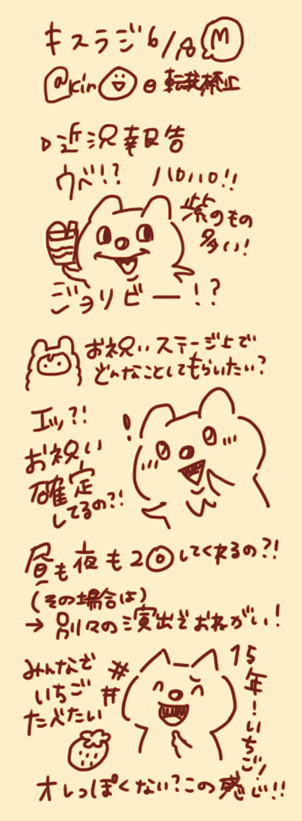 キスラジ6/18 M
@kin 転載禁止
近況報告
ウベ!? ハロハロ!!
紫のもの
多い!
ジョリビー!?
お祝いステージ上で
どんなことしてもらいたい?
エッ?!
お祝い
確定
してるの?!
昼も夜も20してくれるの?!
(その場合は)
→ 別々の演出でおねがい!
みんなで
いちご
たべたい
15年!いちご!
オレっぽくない?この感じ!!